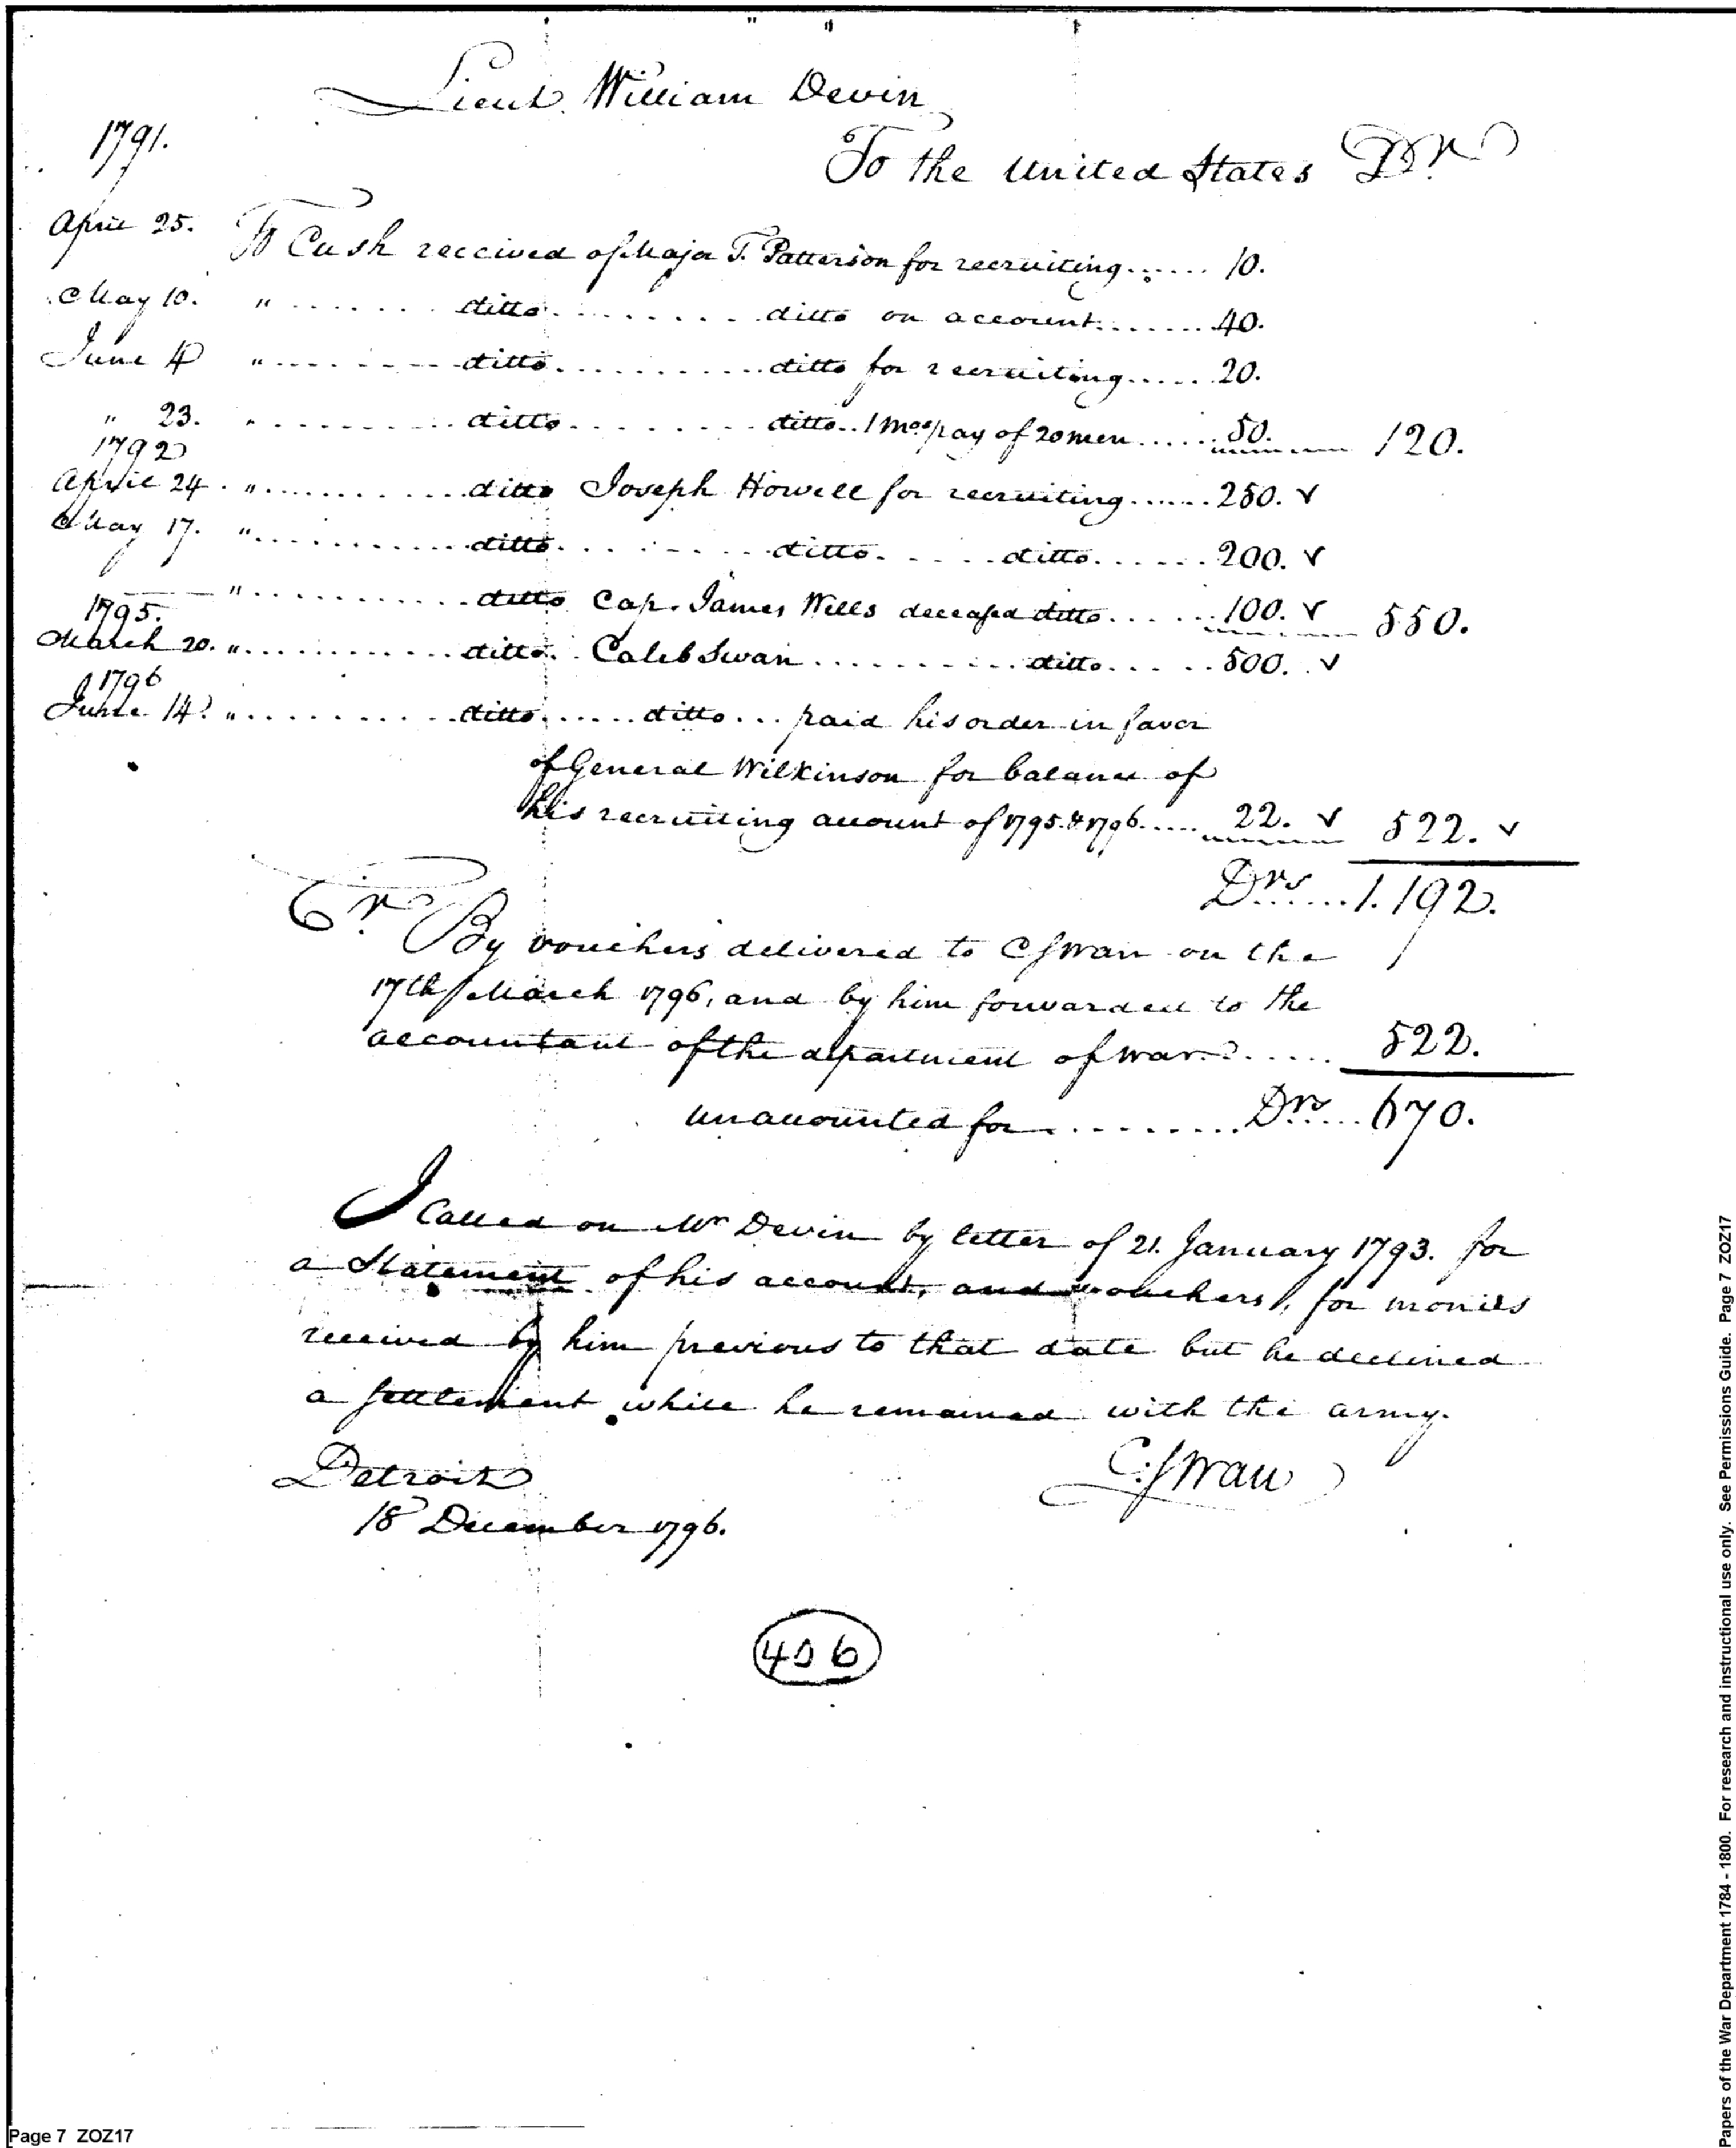 Lieut. William Devin
1791.
To the United States Dr.
April 25. To Cash received of Major T. Patterson for recruiting...... 10.
May 10. " ....... ditto ......... ditto on account....... 40.
June 4 " ......... ditto ........... ditto for recruiting..... 20.
" 23. " ......... ditto ........ ditto.. 1 Mos pay of 20 men ..... 50. ...... 120.
1792
April 24. " ........... ditto Joseph Howell for recruiting...... 250. v
May 17. " ........... ditto ........ ditto ..... ditto ...... 200. v
—— " ........... ditto Cap. James Wells deceased ditto ..... 100. v ...... 550.
1795.
March 20. " ........... ditto. Caleb Swan .......... ditto ..... 500. v
1796
June 14. " ........... ditto ..... ditto ... paid his order in favor
of General Wilkinson for balance of
his recruiting account of 1795. & 1796..... 22. v 522. v
Drs......1.192.
Cr. By vouchers delivered to C Swan on the
17th March 1796, and by him forwarded to the
accountant of the department of war ..... 522.
unaccounted for .......... Drs.... 670.
I Called on Mr Devin by letter of 21. January 1793. for
a Statement of his account, and vouchers, for monies
received by him previous to that date but he declined
a settlement while he remained with the army.
Detroit C: Swan
18 December 1796.
406
Page 7 ZOZ17
Papers of the War Department 1784 - 1800. For research and instructional use only. See Permissions Guide. Page 7 ZOZ17